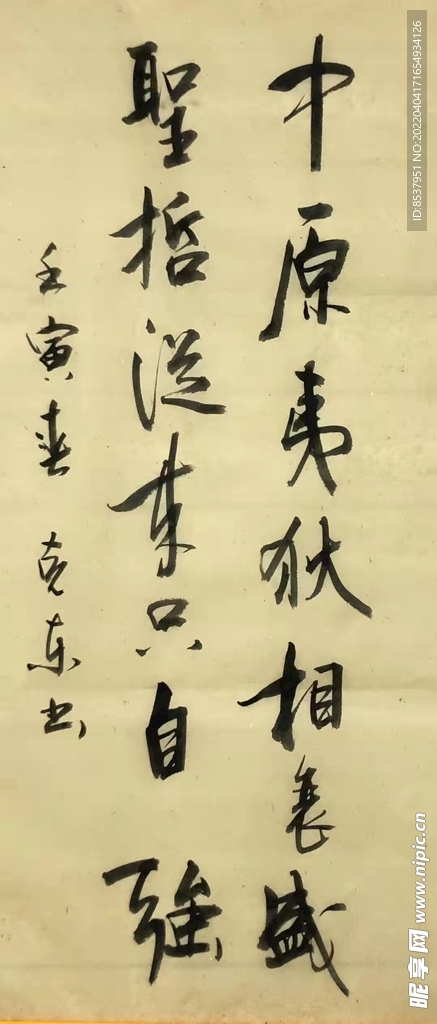 中原夷狄相衰盛
聖哲從来只自強
壬寅春 克东书
ID:8537951 NO:20220404171654934126
昵享网 www.nipic.cn